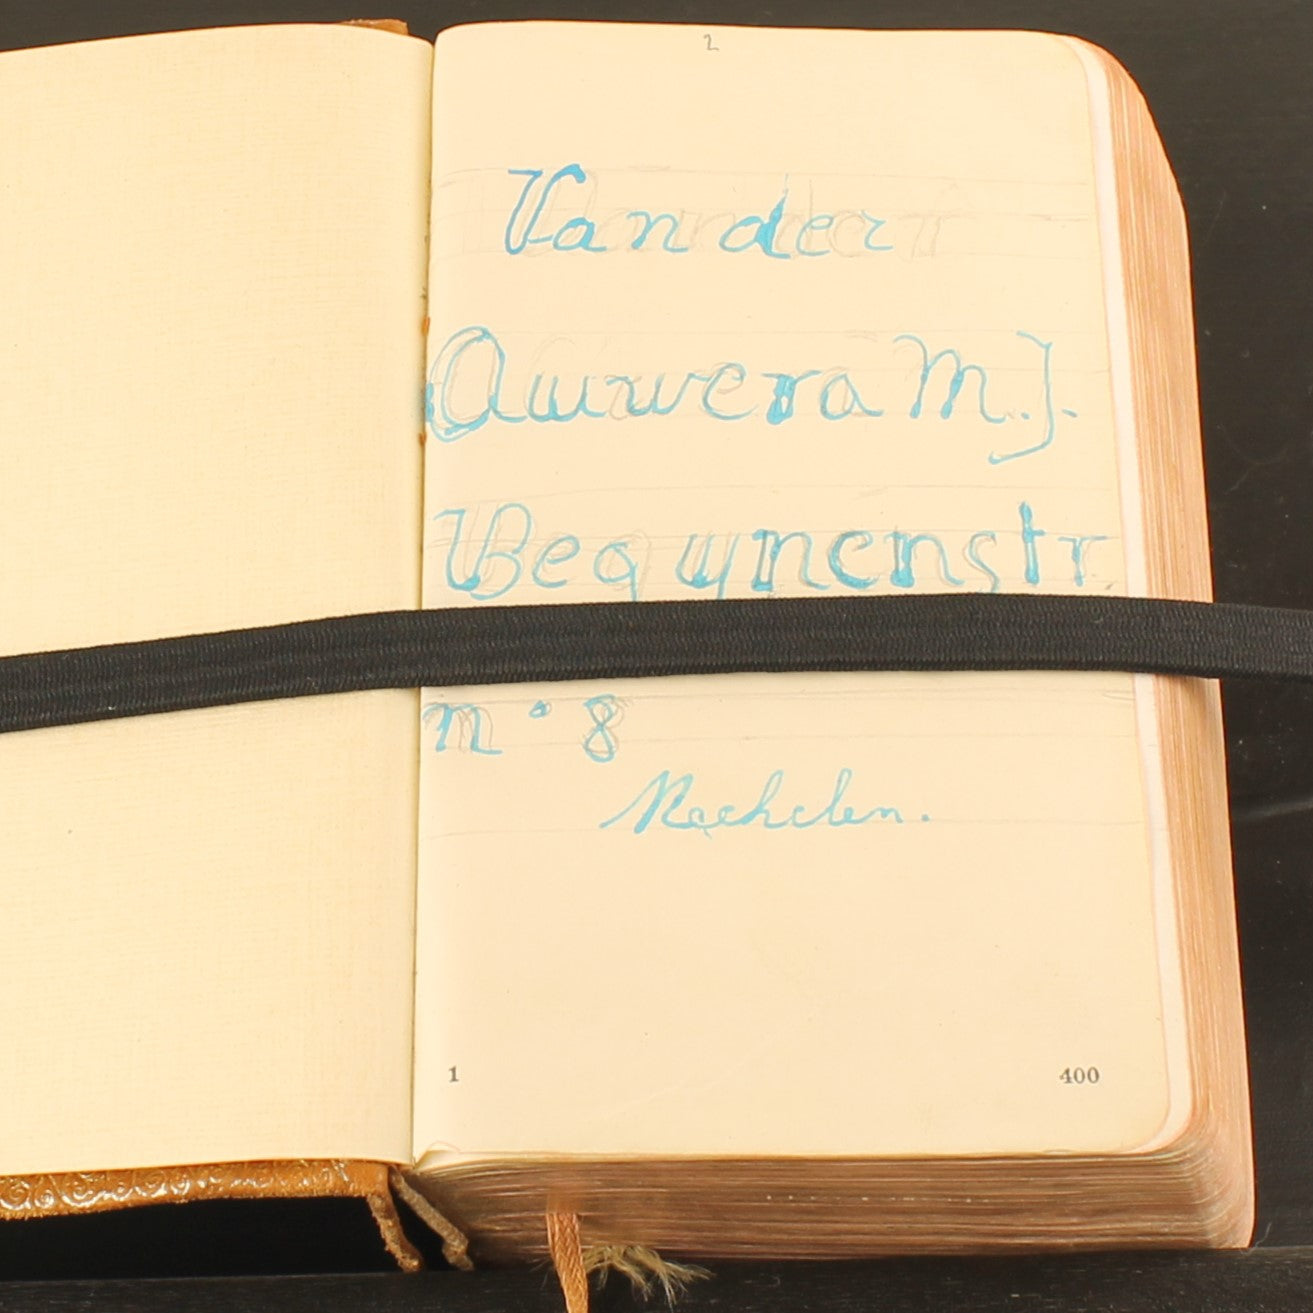 2
Van der
Auwera M. J.
Begijnenstr
n° 8
Mechelen.
1 400